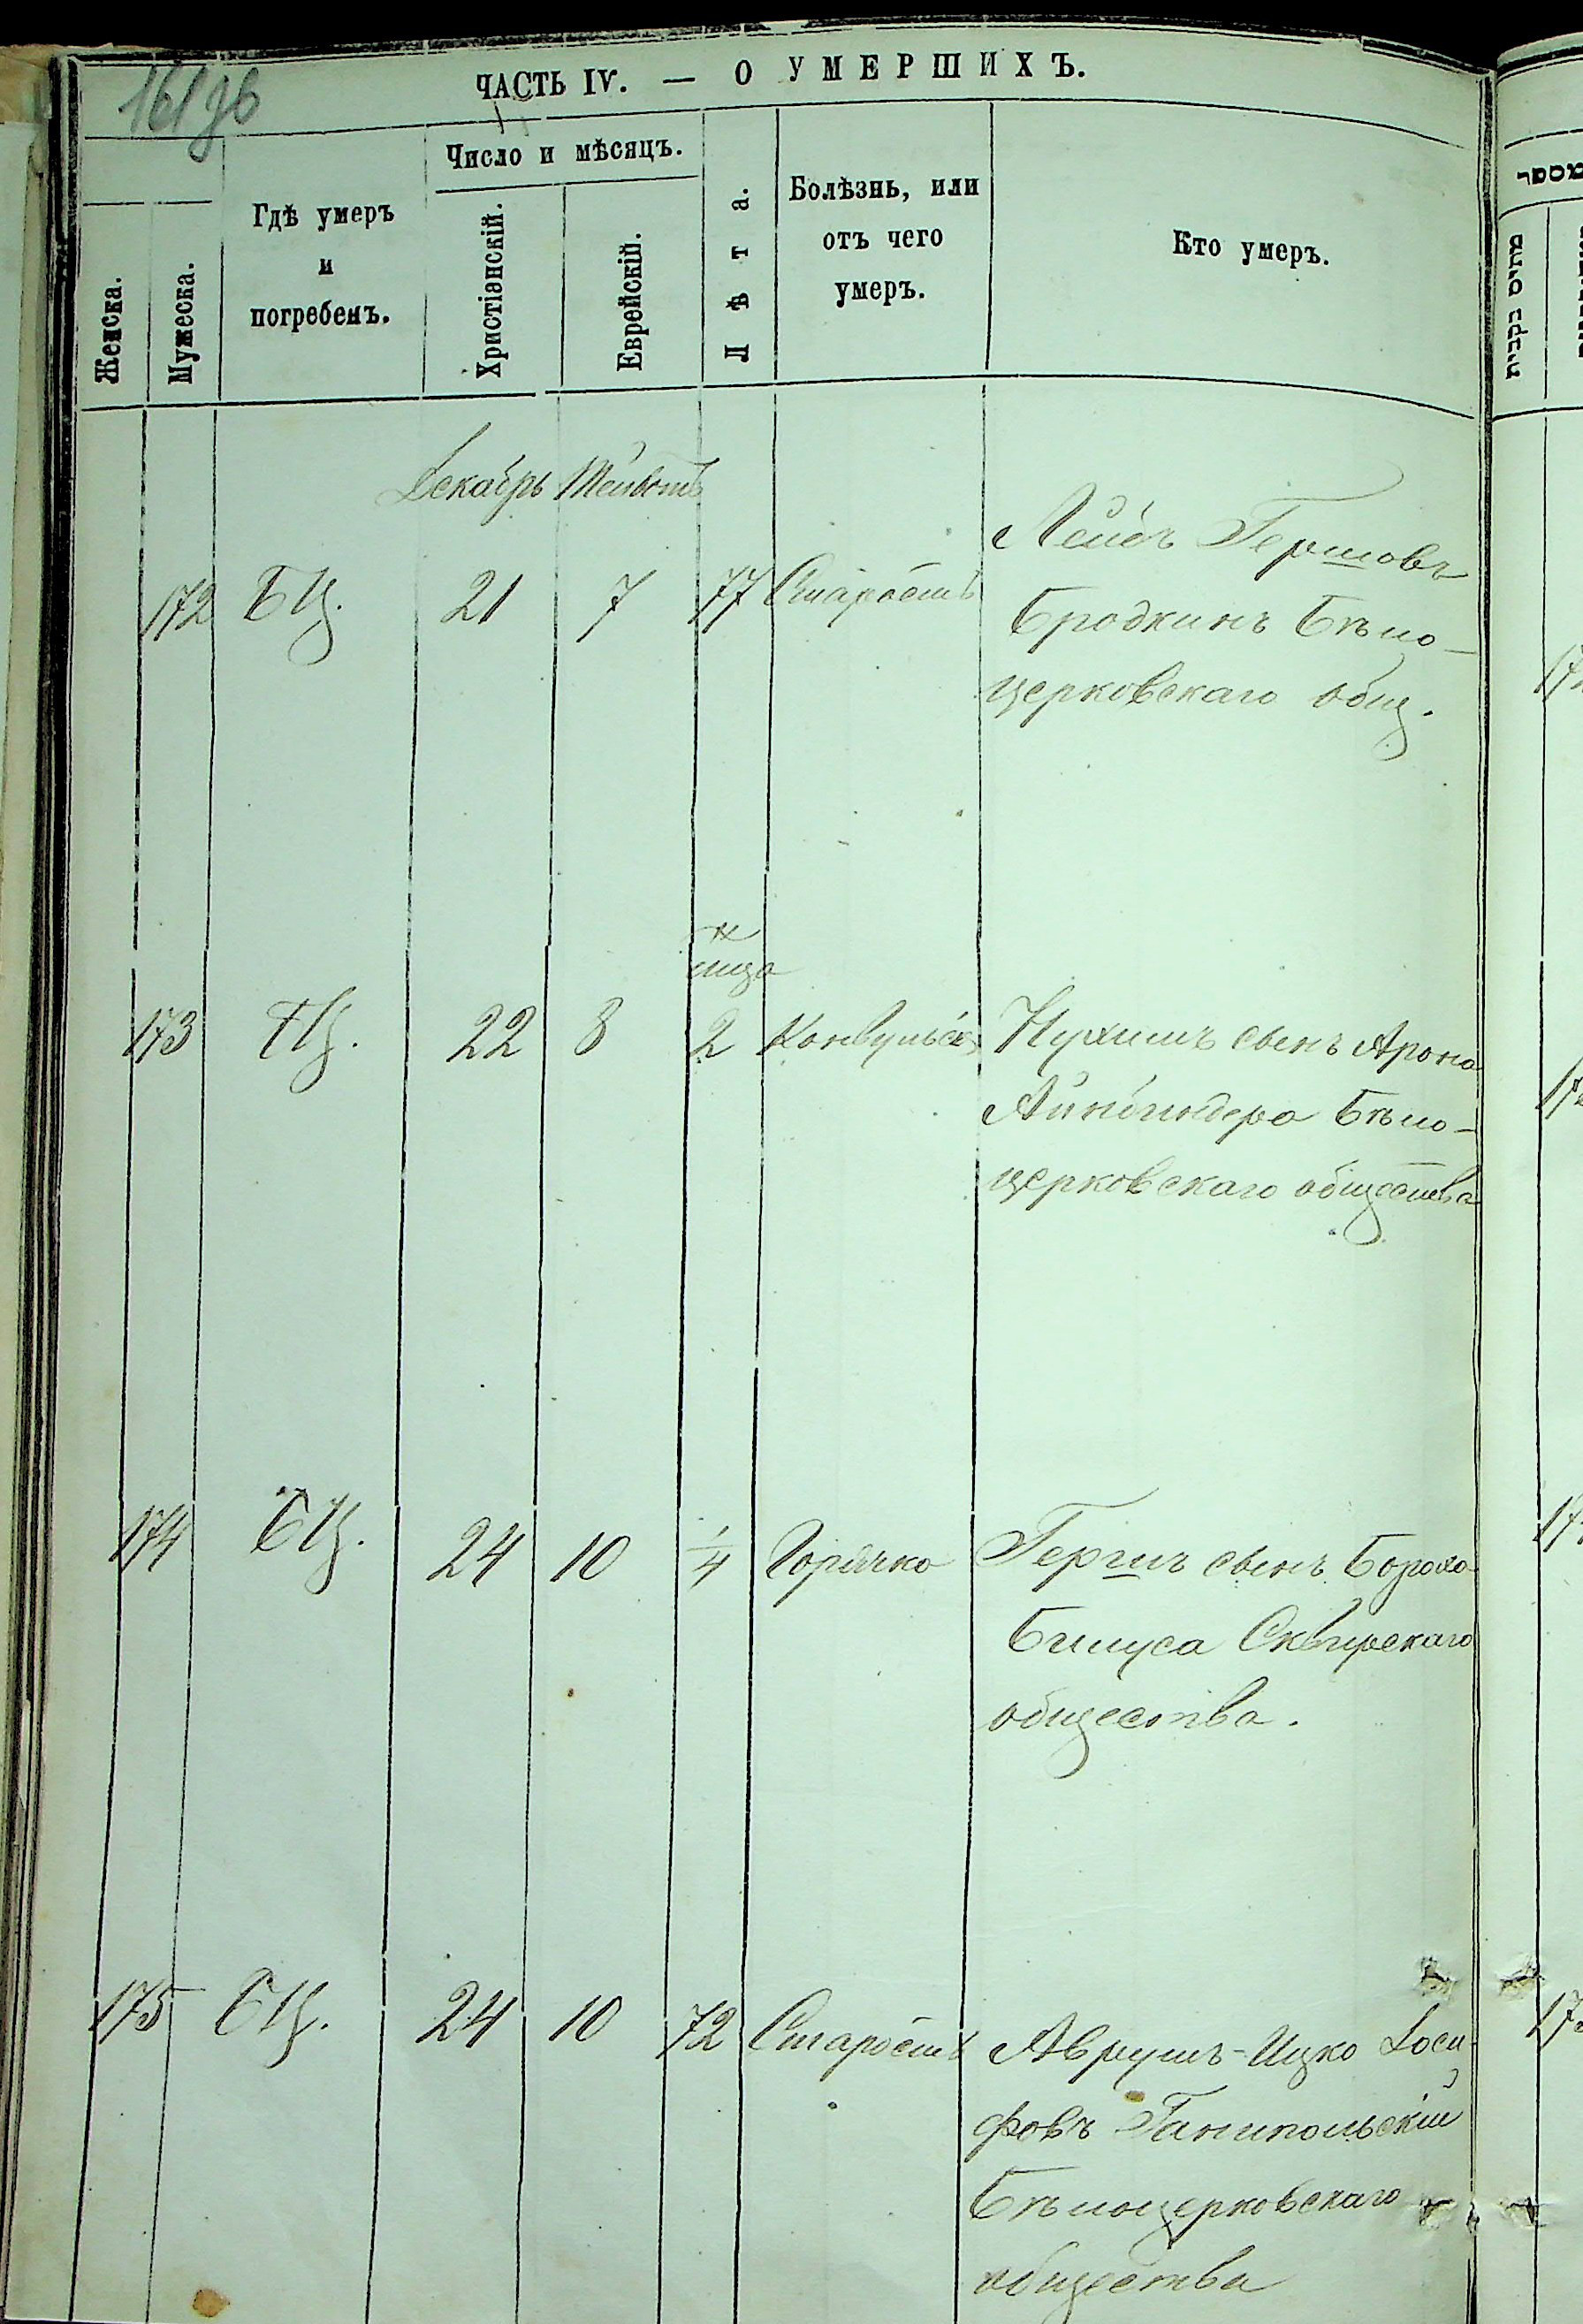 161 зв
ЧАСТЬ IV. — О УМЕРШИХЪ.
Женска.
Мужеска.
Гдѣ умеръ
и
погребенъ.
Число и мѣсяцъ.
Христіанскій.
Еврейскій.
Лѣта.
Болѣзнь, или
отъ чего
умеръ.
Кто умеръ.
מתים בקבית
Декабрь Тейветъ
172 БЦ. 21 7 77 Старость
Лейбъ Гершовъ
Бродкинъ Бѣло-
церковскаго общ.
173 БЦ. 22 8 2 Нухимъ сынъ Арона
Айнбиндера Бѣло-
церковскаго общества
174 БЦ. 24 10 1/4 Горячка Гершъ сынъ Бороха
Билуса Сквирскаго
общества.
175 БЦ. 24 10 72 Старость Аврумъ-Ицко Іоси-
фовъ Ганипольскій
Бѣлоцерковскаго
общества